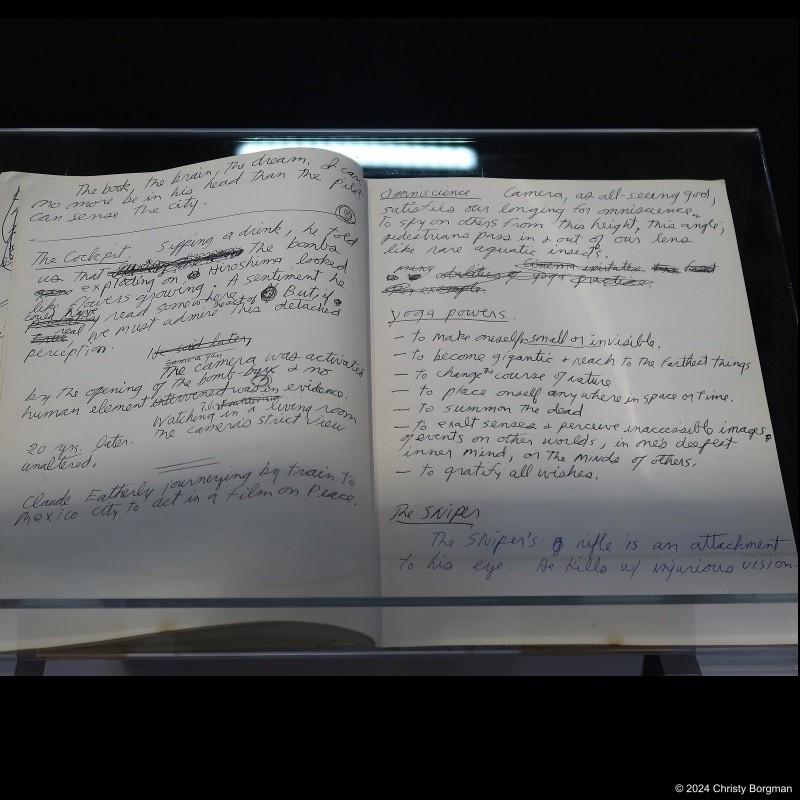 The book, the brain, the dream. I can
no more be in his head than the pilot
can sense the city.
The Cockpit. Sipping a drink, he told
us that The bombs
exploding on Hiroshima looked
like flowers growing. A sentiment he
could have
read somewhere. But, if
real, we must admire this detached
perception.
He said later,
The camera was activated
by the opening of the bomb-bays & no
human element intervened in evidence.
Watching in a living room
20 yrs. later. The camera's strict view
unaltered.
Claude Eatherly journeying by train to
Mexico City to act in a film on Peace.
Omniscience. Camera, as all-seeing god,
satisfies our longing for omniscience.
To spy on others from this height, this angle;
pedestrians pass in & out of our lens
like rare aquatic insects.
Cinema imitates
abilities of yoga practice.
for example.
Yoga powers.
– to make oneself small or invisible.
– to become gigantic & reach to the farthest things
– to change the course of nature
– to place onself anywhere in space or time.
– to summon the dead
– to exalt senses & perceive inaccessible images,
of events on other worlds, in one's deepest
inner mind, or the minds of others.
– to gratify all wishes.
The Sniper
The Sniper's rifle is an attachment
to his eye. He kills w/ injurious vision.
© 2024 Christy Borgman